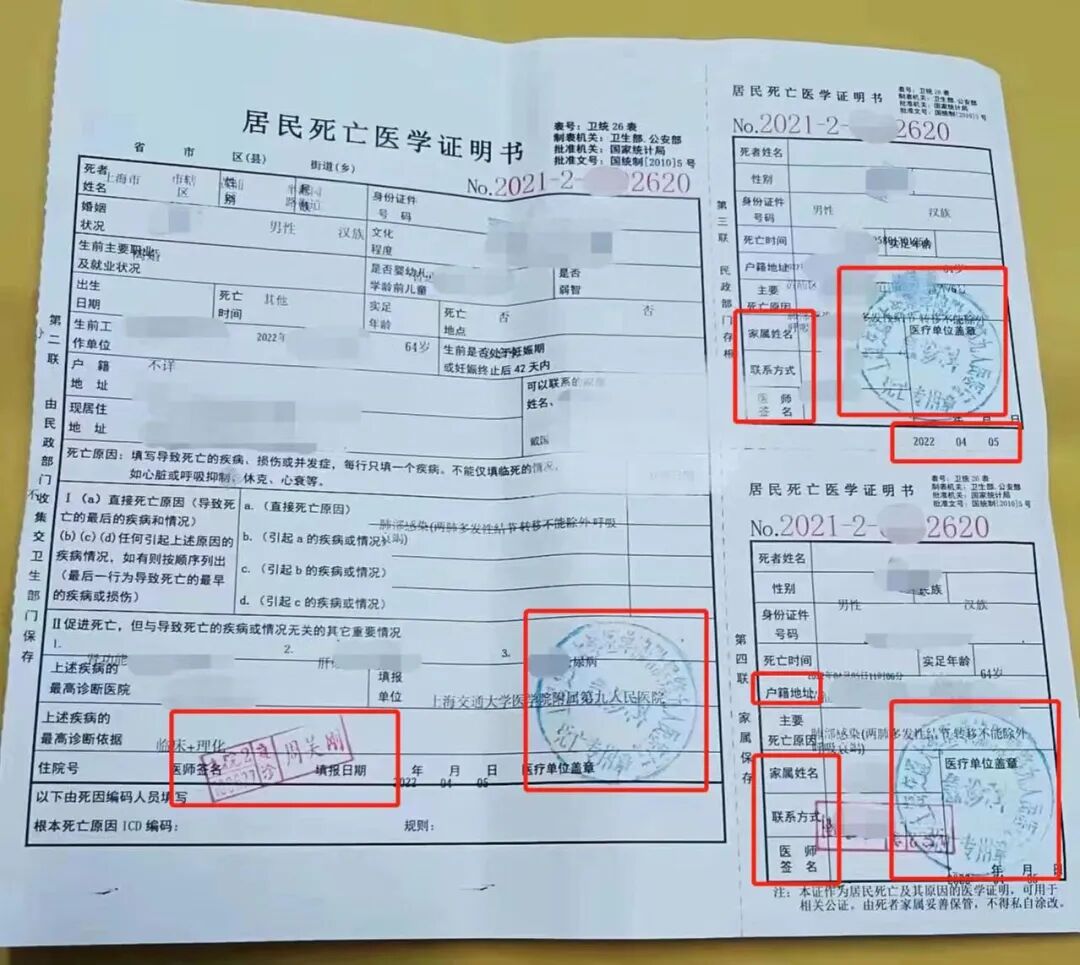 居民死亡医学证明书
表号：卫统26表
制表机关：卫生部.公安部
批准机关：国家统计局
批准文号：国统制[2010]5号
省 市 区(县) 街道(乡)
No.2021-2- 2620
死者姓名 上海市 市辖区
性别
身份证件号码
婚姻状况
男性 汉族
文化程度
生前主要职业及就业状况
是否婴幼儿,学龄前儿童
是否弱智
出生日期
死亡时间 其他
实足年龄
死亡地点 否
否
生前工作单位
2022年
64岁
生前是否处于妊娠期或妊娠终止后42天内
户籍地址 不详
可以联系的
姓名、
现居住地址
死亡原因：填写导致死亡的疾病、损伤或并发症，每行只填一个疾病。不能仅填临死的情况，
如心脏或呼吸抑制、休克、心衰等。
I (a) 直接死亡原因（导致死亡的最后的疾病和情况）
(b)(c)(d)任何引起上述原因的疾病情况，如有则按顺序列出
（最后一行为导致死亡的最早的疾病或损伤）
a.（直接死亡原因）
肺部感染(两肺多发性结节转移不能除外 呼吸衰竭)
b.（引起a的疾病或情况）
c.（引起b的疾病或情况）
d.（引起c的疾病或情况）
II促进死亡，但与导致死亡的疾病或情况无关的其它重要情况
1. 2. 3.
肾功能
尿病
上述疾病的最高诊断医院
填报单位
上海交通大学医学院附属第九人民医院
上述疾病的最高诊断依据
临床+理化
住院号
医师签名
填报日期
年 月 日
2022 04 05
医疗单位盖章
以下由死因编码人员填写
根本死亡原因ICD编码：
规则：
第二联 由民政部门收集交卫生部门保存
居民死亡医学证明书
表号：卫统26表
制表机关：卫生部.公安部
批准机关：国家统计局
批准文号：国统制[2010]5号
No.2021-2- 2620
死者姓名
性别
身份证件号码
男性 汉族
死亡时间
实足年龄
户籍地址
64岁
主要死亡原因
多发性结节 转移不能除外
家属姓名
医疗单位盖章
联系方式
医师签名
年 月 日
2022 04 05
第三联 民政部门存根
居民死亡医学证明书
表号：卫统26表
制表机关：卫生部.公安部
批准机关：国家统计局
批准文号：国统制[2010]5号
No.2021-2- 2620
死者姓名
性别
民族
男性 汉族
身份证件号码
死亡时间
实足年龄
64岁
户籍地址
主要死亡原因
肺部感染(两肺多发性结节 转移不能除外 呼吸衰竭)
家属姓名
医疗单位盖章
联系方式
医师签名
年 月 日
第四联 家属保存
注：本证作为居民死亡及其原因的医学证明，可用于
相关公证。由死者家属妥善保管，不得私自涂改。